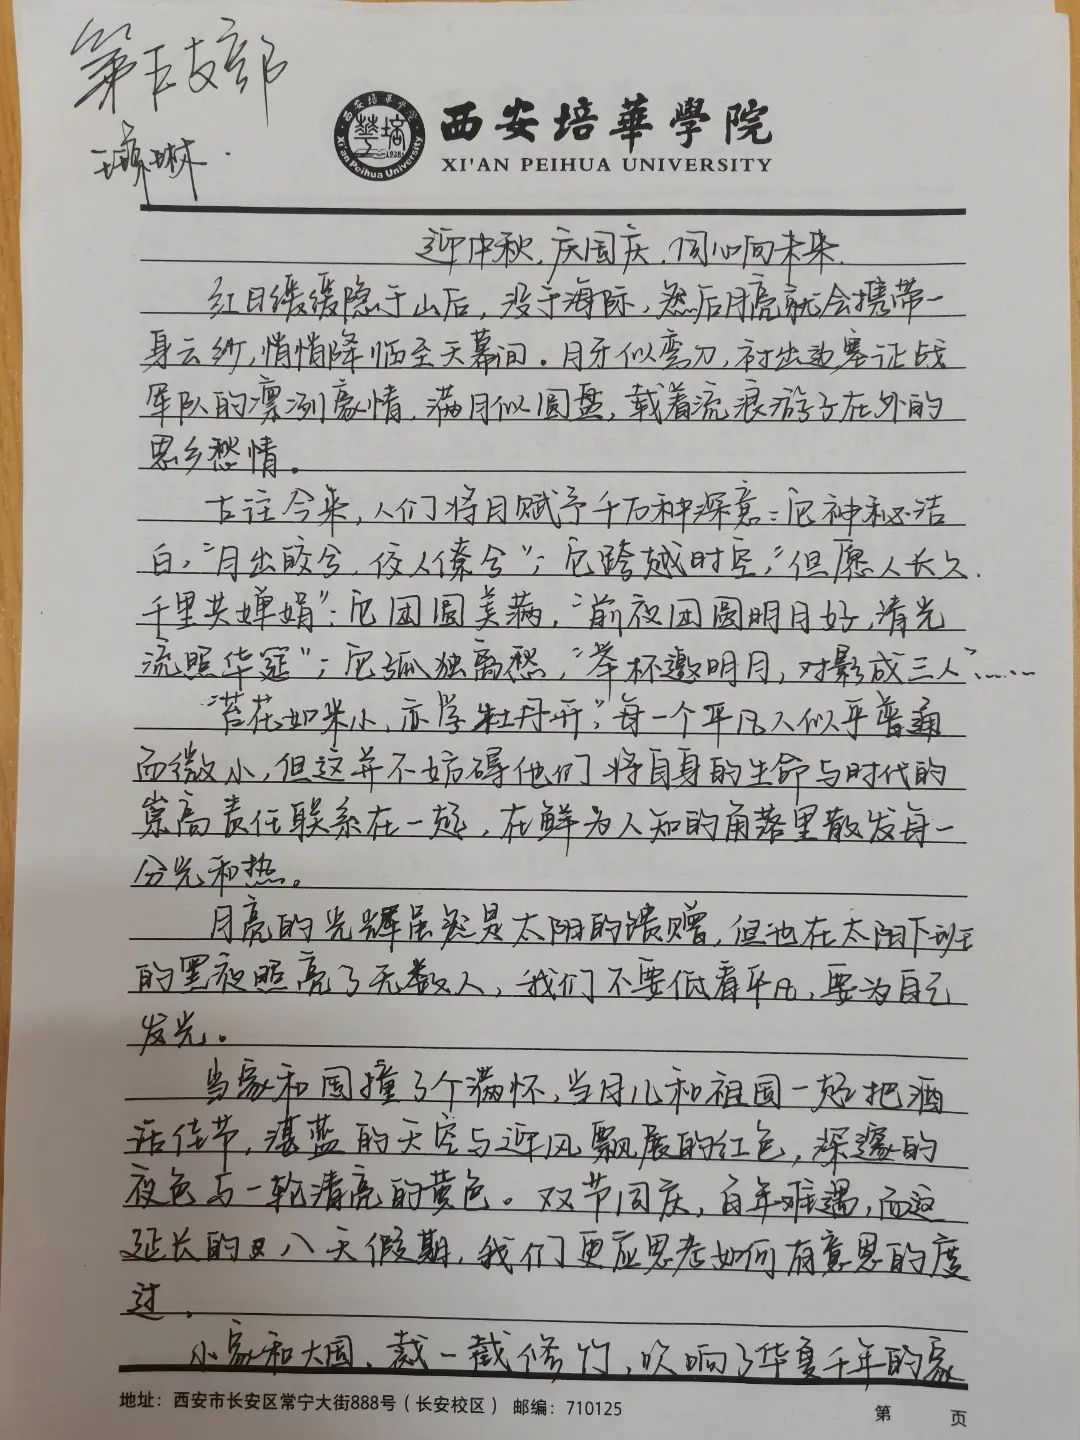 第五支部
西安培華學院
XI'AN PEIHUA UNIVERSITY
西安培华学院
Xi'an Peihua University
1928
迎中秋.庆国庆.同心向未来.
红日缓缓隐于山后，没于海际，然后月亮就会携带一
身云纱，悄悄降临至天幕间。月牙似弯刀，衬出边塞征战
军队的凛冽豪情，满月似圆盘，载着流浪游子在外的
思乡愁情。
古往今来，人们将月赋予千万种深意：它神秘洁
白，“月出皎兮，佼人僚兮”；它跨越时空，“但愿人长久.
千里共婵娟”；它团圆美满，“前夜团圆明月好，清光
流照华筵”；它孤独离愁，“举杯邀明月，对影成三人”……
“苔花如米小，亦学牡丹开”，每一个平凡人似乎普通
而微小，但这并不妨碍他们将自身的生命与时代的
崇高责任联系在一起，在鲜为人知的角落里散发每一
分光和热。
月亮的光辉虽然是太阳的馈赠，但也在太阳下班
的黑夜照亮了无数人，我们不要低看平凡，要为自己
发光。
当家和国撞了个满怀，当月儿和祖国一起把酒
话佳节，湛蓝的天空与迎风飘展的红色，深邃的
夜色与一轮清亮的黄色。双节同庆，百年难遇，而这
延长的八天假期，我们更应思考如何有意思的度
过。
小家和大国，裁一截修竹，吹响了华夏千年的家
地址：西安市长安区常宁大街888号（长安校区） 邮编：710125
第 页